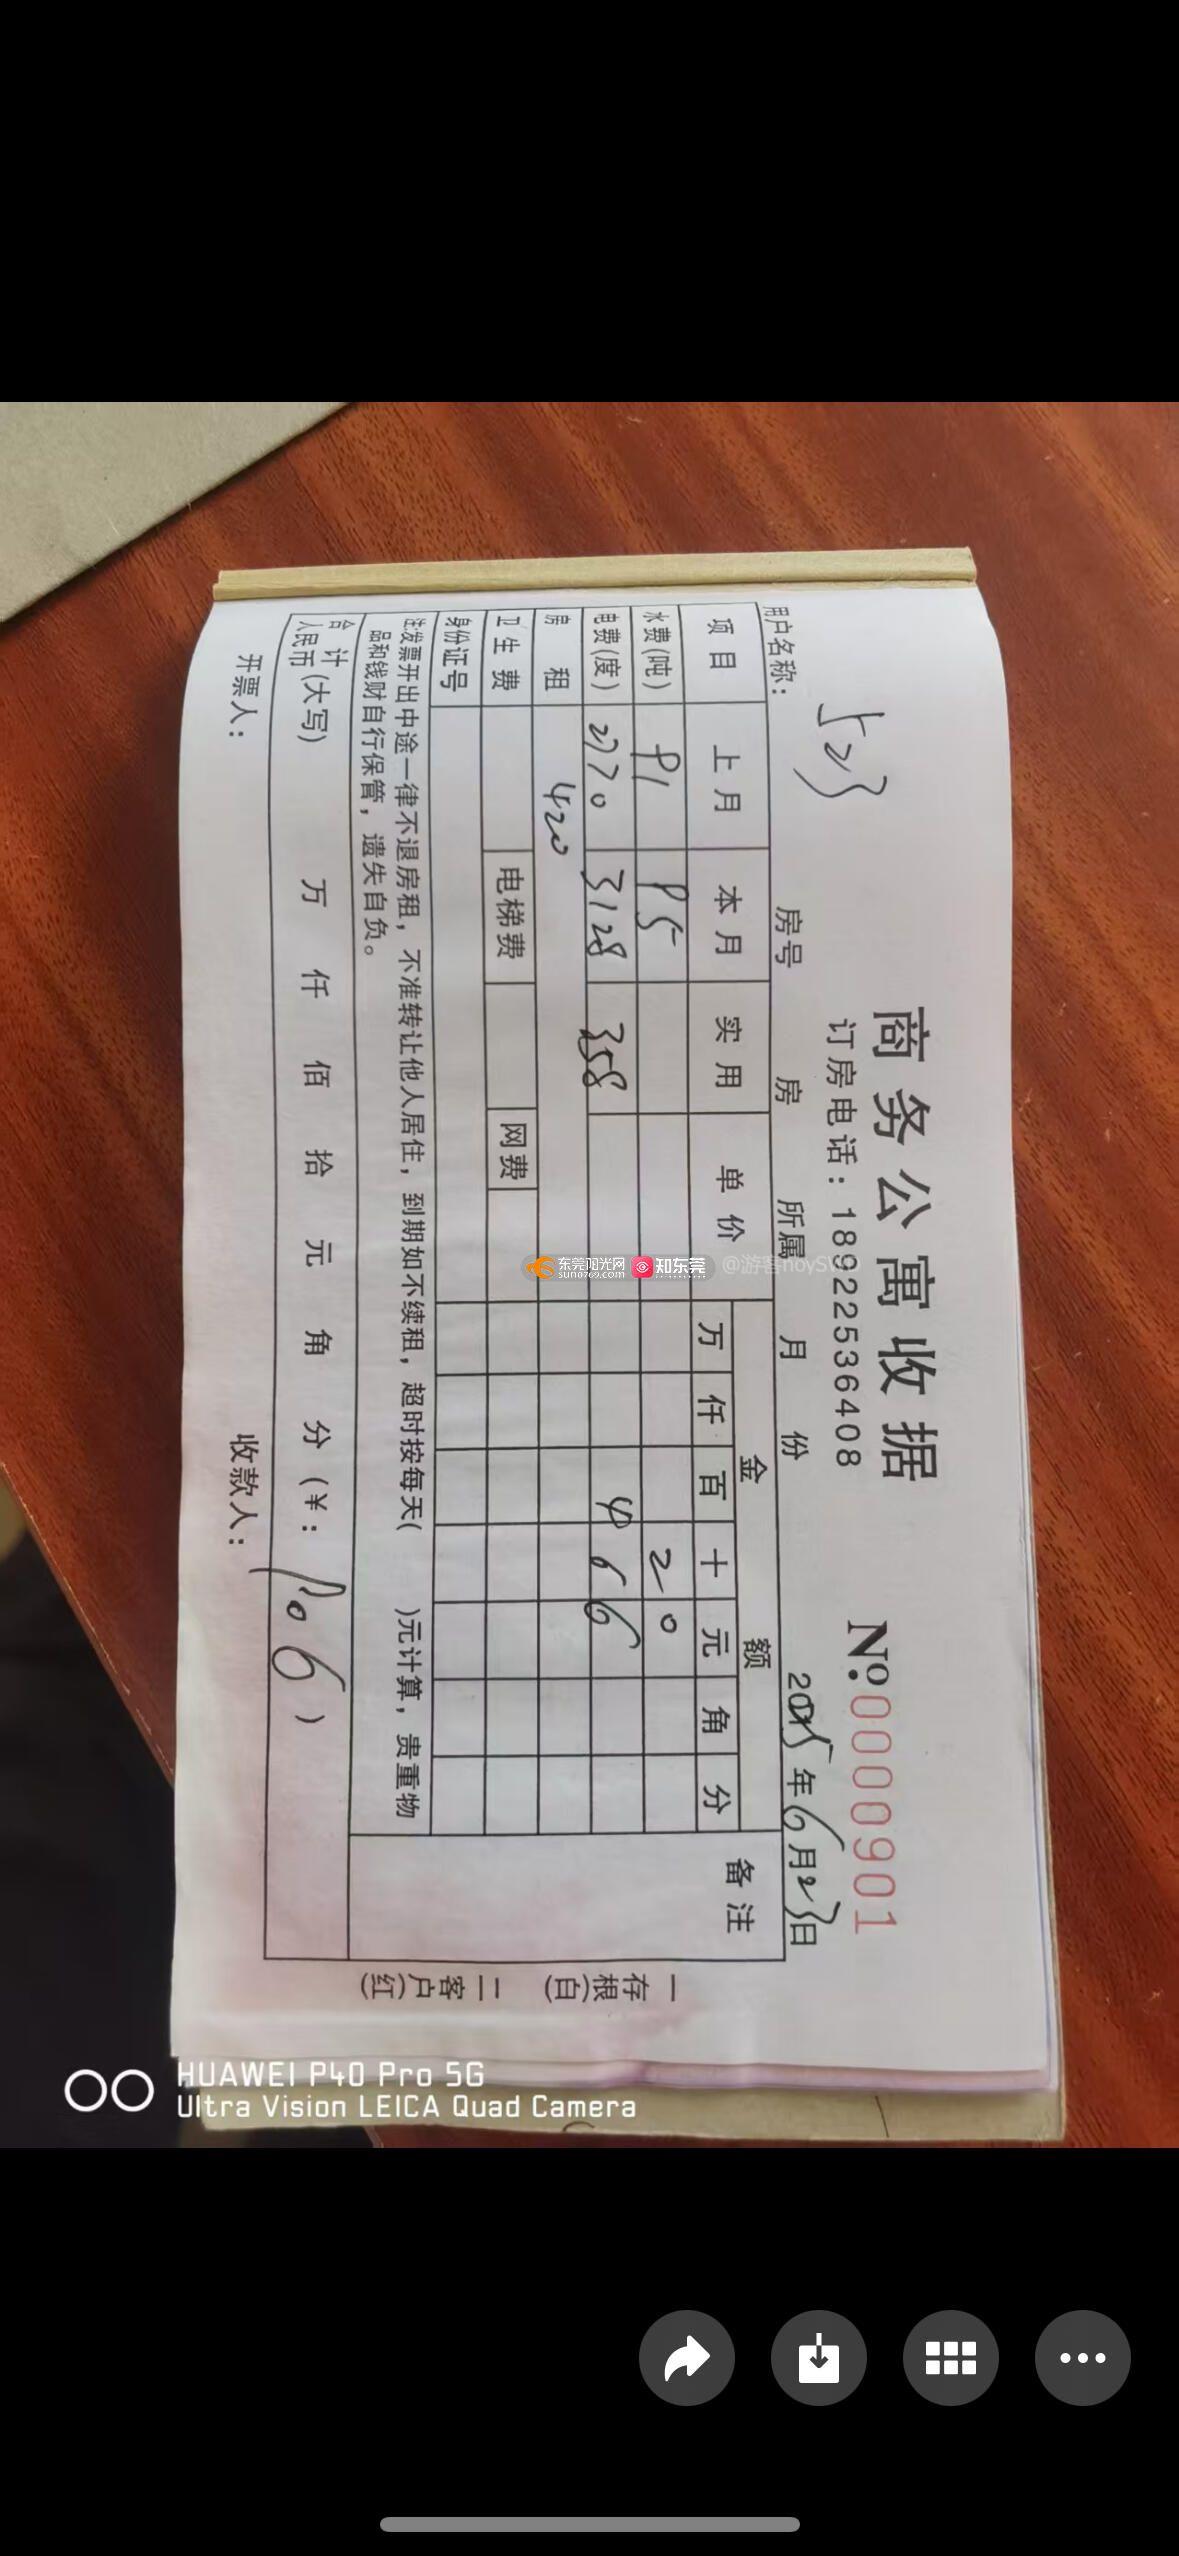 商务公寓收据
No.0000901
订房电话：18922536408
523
用户名称：
房号 房 所属 月 份 2025年6月23日
项目 上月 本月 实用 单价 金额 备注
万 仟 百 十 元 角 分
水费(吨) 91 95 2 0
电费(度) 2770 3128 358 4 6 6
房租 420
卫生费 电梯费 网费
身份证号
注:发票开出中途一律不退房租，不准转让他人居住，到期如不续租，超时按每天( )元计算，贵重物
品和钱财自行保管，遗失自负。
合计
人民币(大写) 万 仟 佰 拾 元 角 分(￥: 906 )
开票人： 收款人：
一存根(白) 二客户(红)
东莞阳光网
sun0769.com
知东莞
HUAWEI P40 Pro 5G
Ultra Vision LEICA Quad Camera